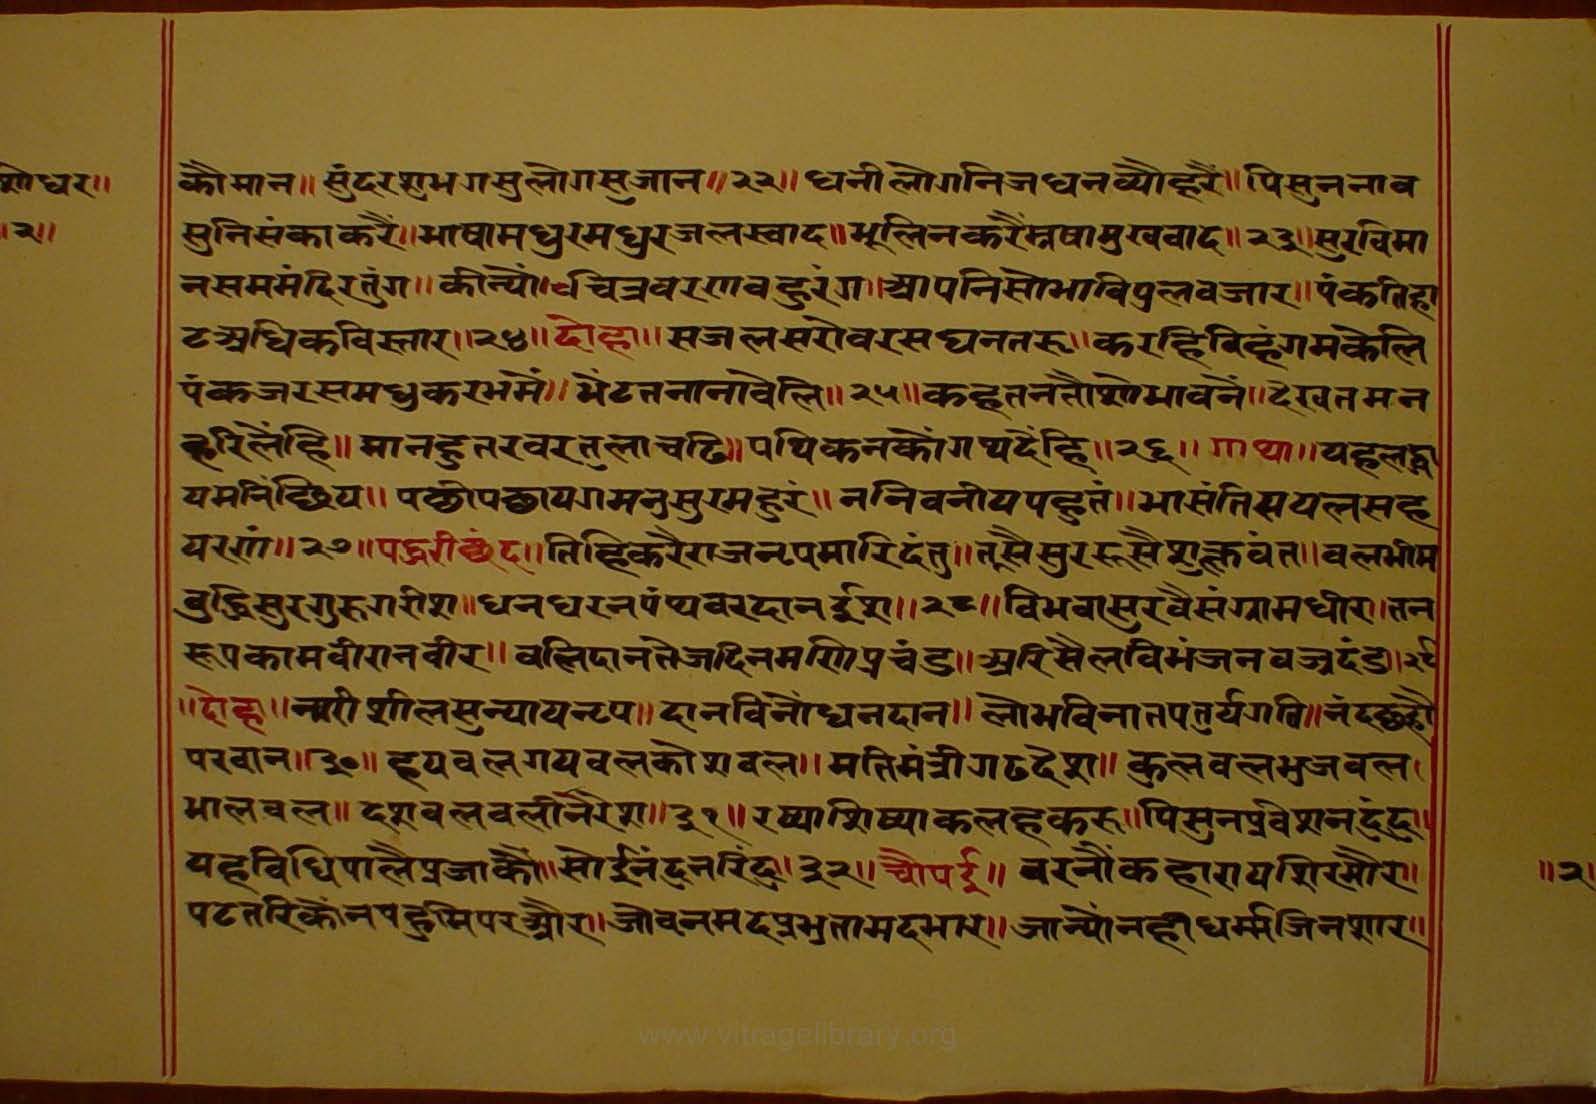 शोधर॥
॥२॥
कौमान॥ सुंदरशुभगसुलोगसुजान॥२२॥ धनीलोगनिजधनव्यौहरैं॥ पिसुननाव
सुनिसंकाकरैं॥ भाषामधुरमधुरजलस्वाद॥ भूलिनकरैंमृषामुखवाद॥२३॥ सुरविमा
नसममंदिरतुंग॥ कीन्यौं चित्रवरणवहुरंग॥ आपनिसोभाविपुलवजार॥ पंकतिहा
टअधिकविस्तार॥२४॥ दोहा॥ सजलसरोवरसघनतरू॥ करहिविहंगमकेलि
पंकजरसमधुकरभमें॥ भेंटतनानावेलि॥२५॥ कहतनतौशोभावनें॥ देखतमन
हरिलेंहि॥ मानहुतरवरतुलाचढि॥ पथिकनकौंगथदेंहि॥२६॥ गाथा॥ यह
यमनिंछिय॥ पछीपछायगमनुसुरमहुरं॥ ननिवनीयपहुतं॥ भासंतिसयलसह
यरणं॥२७॥ पद्धरीछंद॥ तिहिकरैराजनृपमारिदंतु॥ तूसैसुररूसैशुलवंत॥ वलभीम
वुद्धिसुरगुरुगरीश॥ धनधरनपंथवरदानईश॥२८॥ विभवासुरवैसंग्रामधीर॥ तन
रूपकामवीरानवीर॥ वलिदानतेजदिनमणिप्रचंड॥ अरिसैलविभंजनवज्रदंड॥२९
॥दोहा॥ नारीशीलसुन्यायनृप॥ दानविनोंधनदान॥ लोभविनातपतुर्यगति॥
परवान॥३०॥ हयवलगयवलकोशवल॥ मतिमंत्रीगढदेश॥ कुलवलभुजवल
भालवल॥ दशवलवलीनरेश॥३१॥ रष्याशिष्याकलहकरू॥ पिसुनप्रवेशनदुंदु॥
यहविधिपालैप्रजाकौं॥ सोईनंदनरिंदु॥३२॥ चौपई॥ वरनौंकहारायशिरमौर॥
पटतरिकौंनपहुमिपरऔर॥ जोवनमदप्रभुतामदभार॥ जान्यौंनहीधर्म्मजिनशार॥
॥२॥
www.vitragelibrary.org